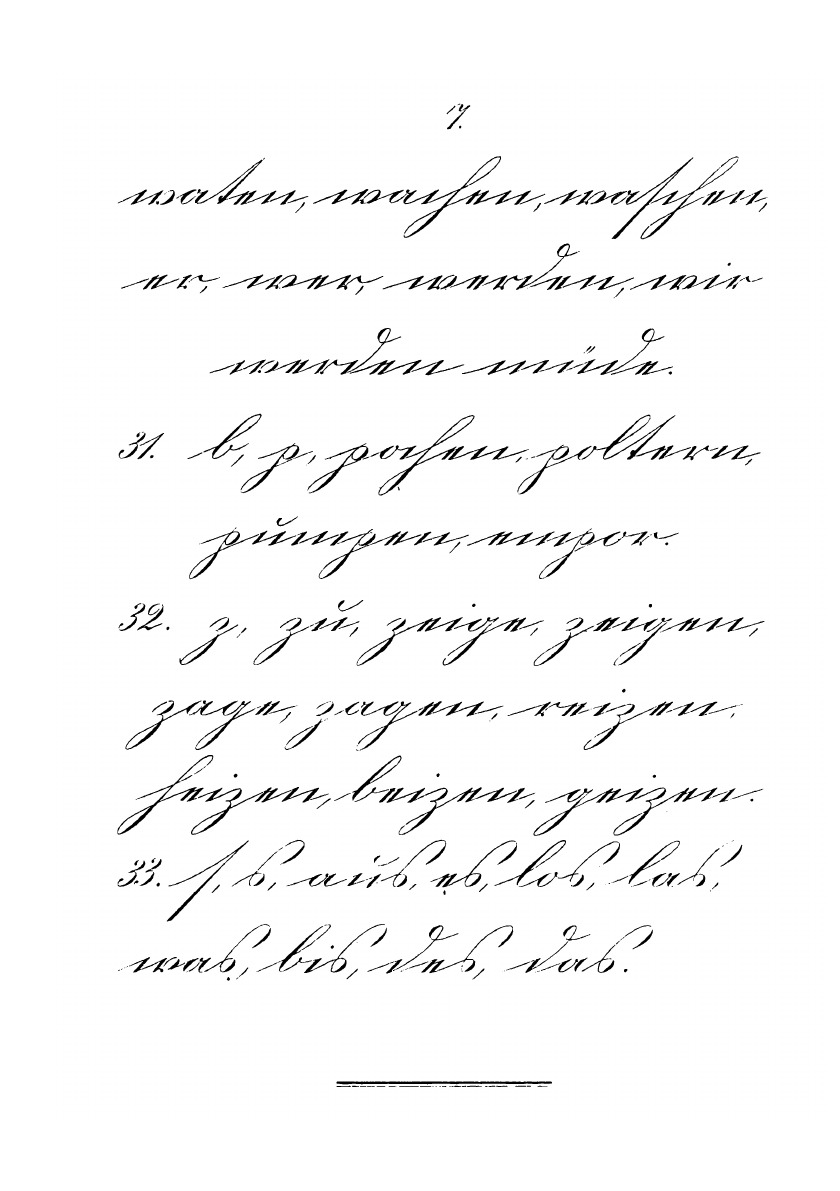 7.
waten, wachen, waschen,
er, wer, werden, wir
werden müde.
31. b, p, pochen, poltern,
pumpen, empor.
32. z, zu, zeige, zeigen,
zage, zagen, reizen,
heizen, beizen, geizen.
33. ſ, s, aus, es, los, las,
was, bis, des, das.